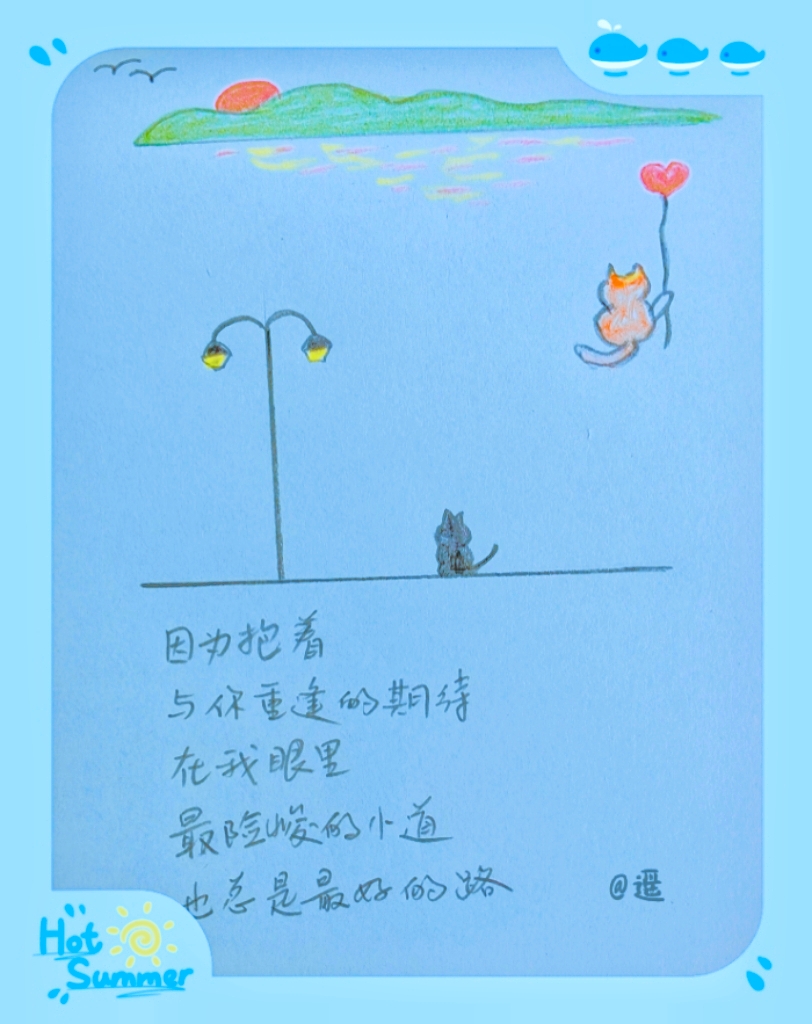 因为抱着
与你重逢的期待
在我眼里
最险峻的小道
也总是最好的路
@遥
Hot
Summer